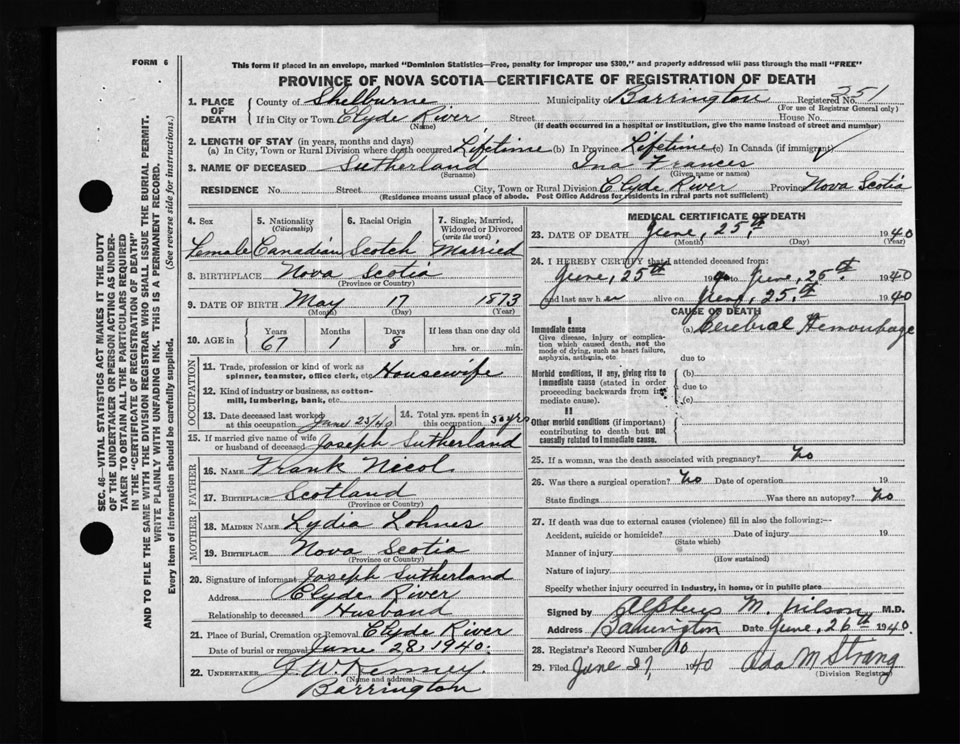 FORM 6
This form if placed in an envelope, marked "Dominion Statistics—Free, penalty for improper use $300," and properly addressed will pass through the mail "FREE"
PROVINCE OF NOVA SCOTIA—CERTIFICATE OF REGISTRATION OF DEATH
1. PLACE OF DEATH County of Shelburne Municipality of Barrington Registered No. 351
(For use of Registrar General only)
If in City or Town Clyde River Street House No.
(Name) (If death occurred in a hospital or institution, give the name instead of street and number)
2. LENGTH OF STAY (in years, months and days)
(a) In City, Town or Rural Division where death occurred Lifetime (b) In Province Lifetime (c) In Canada (if immigrant)
3. NAME OF DECEASED Sutherland Ina Frances
(Surname) (Given name or names)
RESIDENCE No. Street City, Town or Rural Division Clyde River Province Nova Scotia
(Residence means usual place of abode. Post Office Address for residents in rural parts not sufficient)
4. Sex 5. Nationality (Citizenship) 6. Racial Origin 7. Single, Married, Widowed or Divorced (write the word)
Female Canadian Scotch Married
8. BIRTHPLACE Nova Scotia
(Province or Country)
9. DATE OF BIRTH May 17 1873
(Month) (Day) (Year)
10. AGE in Years Months Days If less than one day old
67 1 8 hrs. or min.
OCCUPATION
11. Trade, profession or kind of work as spinner, teamster, office clerk, etc. Housewife
12. Kind of industry or business, as cotton-mill, lumbering, bank, etc.
13. Date deceased last worked at this occupation June 25/40 14. Total yrs. spent in this occupation 50 yrs
15. If married give name of wife or husband of deceased Joseph Sutherland
FATHER
16. NAME Frank Nicol
17. BIRTHPLACE Scotland
(Province or Country)
MOTHER
18. MAIDEN NAME Lydia Lohnes
19. BIRTHPLACE Nova Scotia
(Province or Country)
20. Signature of informant Joseph Sutherland
Address Clyde River
Relationship to deceased Husband
21. Place of Burial, Cremation or Removal Clyde River
Date of burial or removal June 28, 1940.
22. UNDERTAKER J. W. Kenney.
(Name and address)
Barrington
MEDICAL CERTIFICATE OF DEATH
23. DATE OF DEATH June, 25th 1940
(Month) (Day) (Year)
24. I HEREBY CERTIFY that I attended deceased from:
June, 25th 19 to June, 25th 1940
and last saw her alive on June, 25th 1940
CAUSE OF DEATH
I
Immediate cause (a) Cerebral Hemorrhage
Give disease, injury or complication which caused death, not the mode of dying, such as heart failure, asphyxia, asthenia, etc.
due to
Morbid conditions, if any, giving rise to immediate cause (stated in order proceeding backwards from immediate cause) (b)
due to
(c)
II
Other morbid conditions (if important) contributing to death but not causally related to immediate cause.
25. If a woman, was the death associated with pregnancy? No
26. Was there a surgical operation? No Date of operation 19
State findings Was there an autopsy? No
27. If death was due to external causes (violence) fill in also the following:—
Accident, suicide or homicide? Date of injury 19
(State which)
Manner of injury
(How sustained)
Nature of injury
Specify whether injury occurred in industry, in home, or in public place
Signed by Alpheus M. Wilson M.D.
Address Barrington Date June, 26th 1940.
28. Registrar's Record Number
29. Filed June 27, 1940 Ada M Strang
(Division Registrar)
SEC. 46—VITAL STATISTICS ACT MAKES IT THE DUTY
OF THE UNDERTAKER OR PERSON ACTING AS UNDERTAKER
TO OBTAIN ALL THE PARTICULARS REQUIRED
IN THE "CERTIFICATE OF REGISTRATION OF DEATH"
AND TO FILE THE SAME WITH THE DIVISION REGISTRAR WHO SHALL ISSUE THE BURIAL PERMIT.
WRITE PLAINLY WITH UNFADING INK. THIS IS A PERMANENT RECORD.
Every item of information should be carefully supplied. (See reverse side for instructions.)